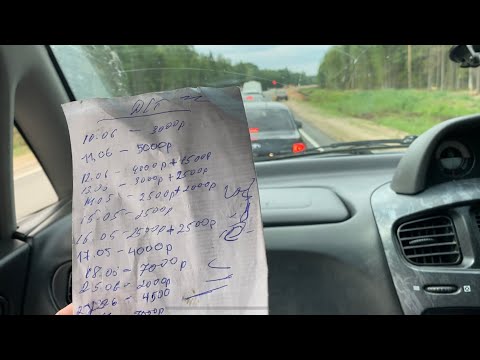 10.06 – 3000р
11.06 – 5000р
12.06 – 4800р + 2500р
13.06 – 3000р + 2500р
14.05 – 2500р + 2000р
15.05 – 2500р
16.05 – 2500р + 2500р
17.05 – 4000р
18.06 – 7000р
25.06 – 2000р
– 4500